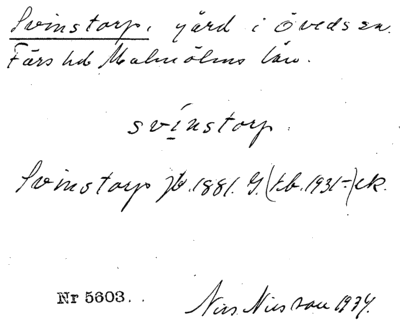 Svinstorp, gård i Öveds sn.
Färs hd Malmöhus län.
svinstorp.
Svinstorp jb. 1881. G. (t.b. 1931-) ek.
Nr 5603.
Nils Nilsson 1934.